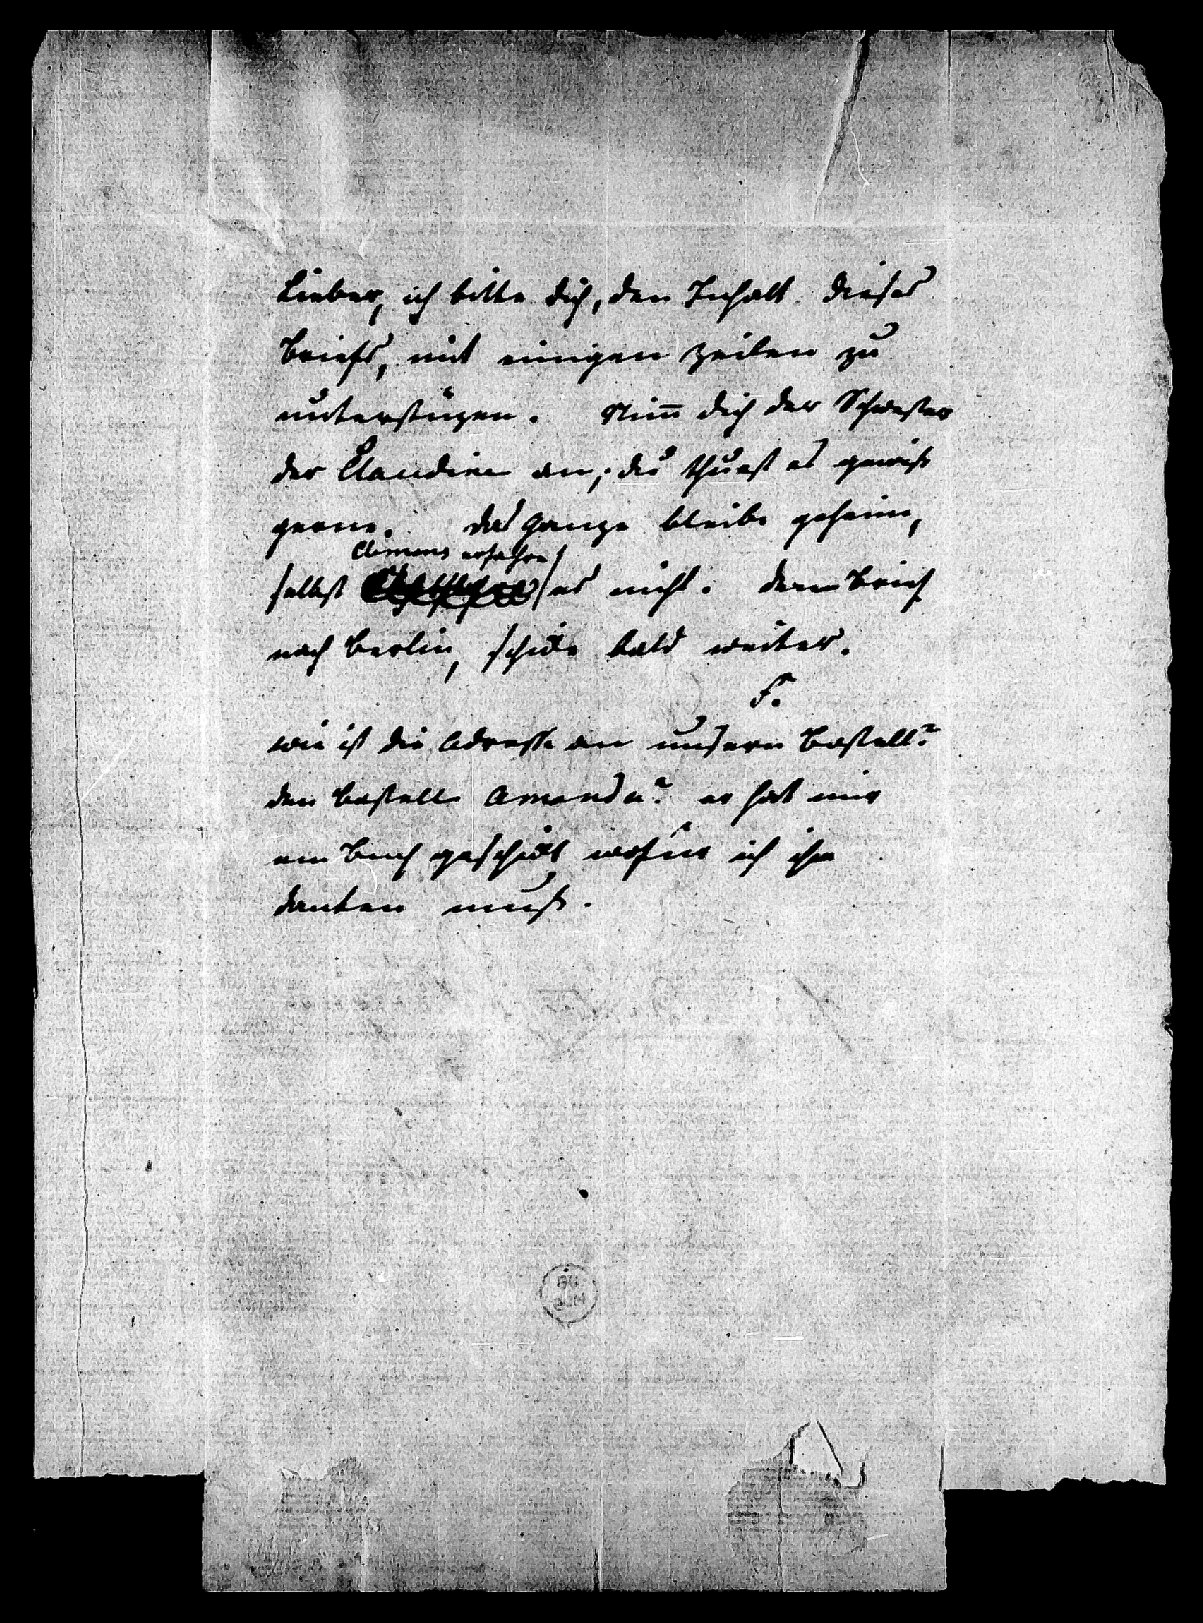 Lieber, ich bitte dich, den Inhalt dieses
briefs, mit einigen Zeilen zu
unterstüzen. Nim̅ dich der Schwester
der Claudine an; du thuest es gewiß
gerne. das ganze bleibe geheim,
Clemens erfahre
selbst es nicht. dem brief
nach berlin, schicke bald weiter.
F.
wie ist die adresse an unsern bostell?
den bostell amanda? er hat mir
ein buch geschickt, wofür ich ihm
danken muß.